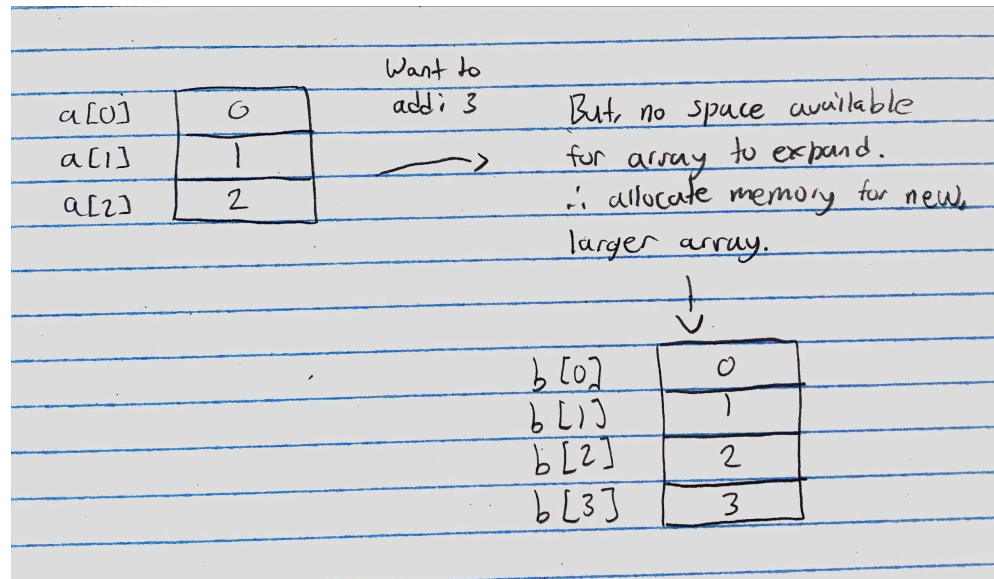 Want to
add: 3
a[0] 0
a[1] 1
a[2] 2
But, no space available
for array to expand.
∴ allocate memory for new,
larger array.
b[0] 0
b[1] 1
b[2] 2
b[3] 3